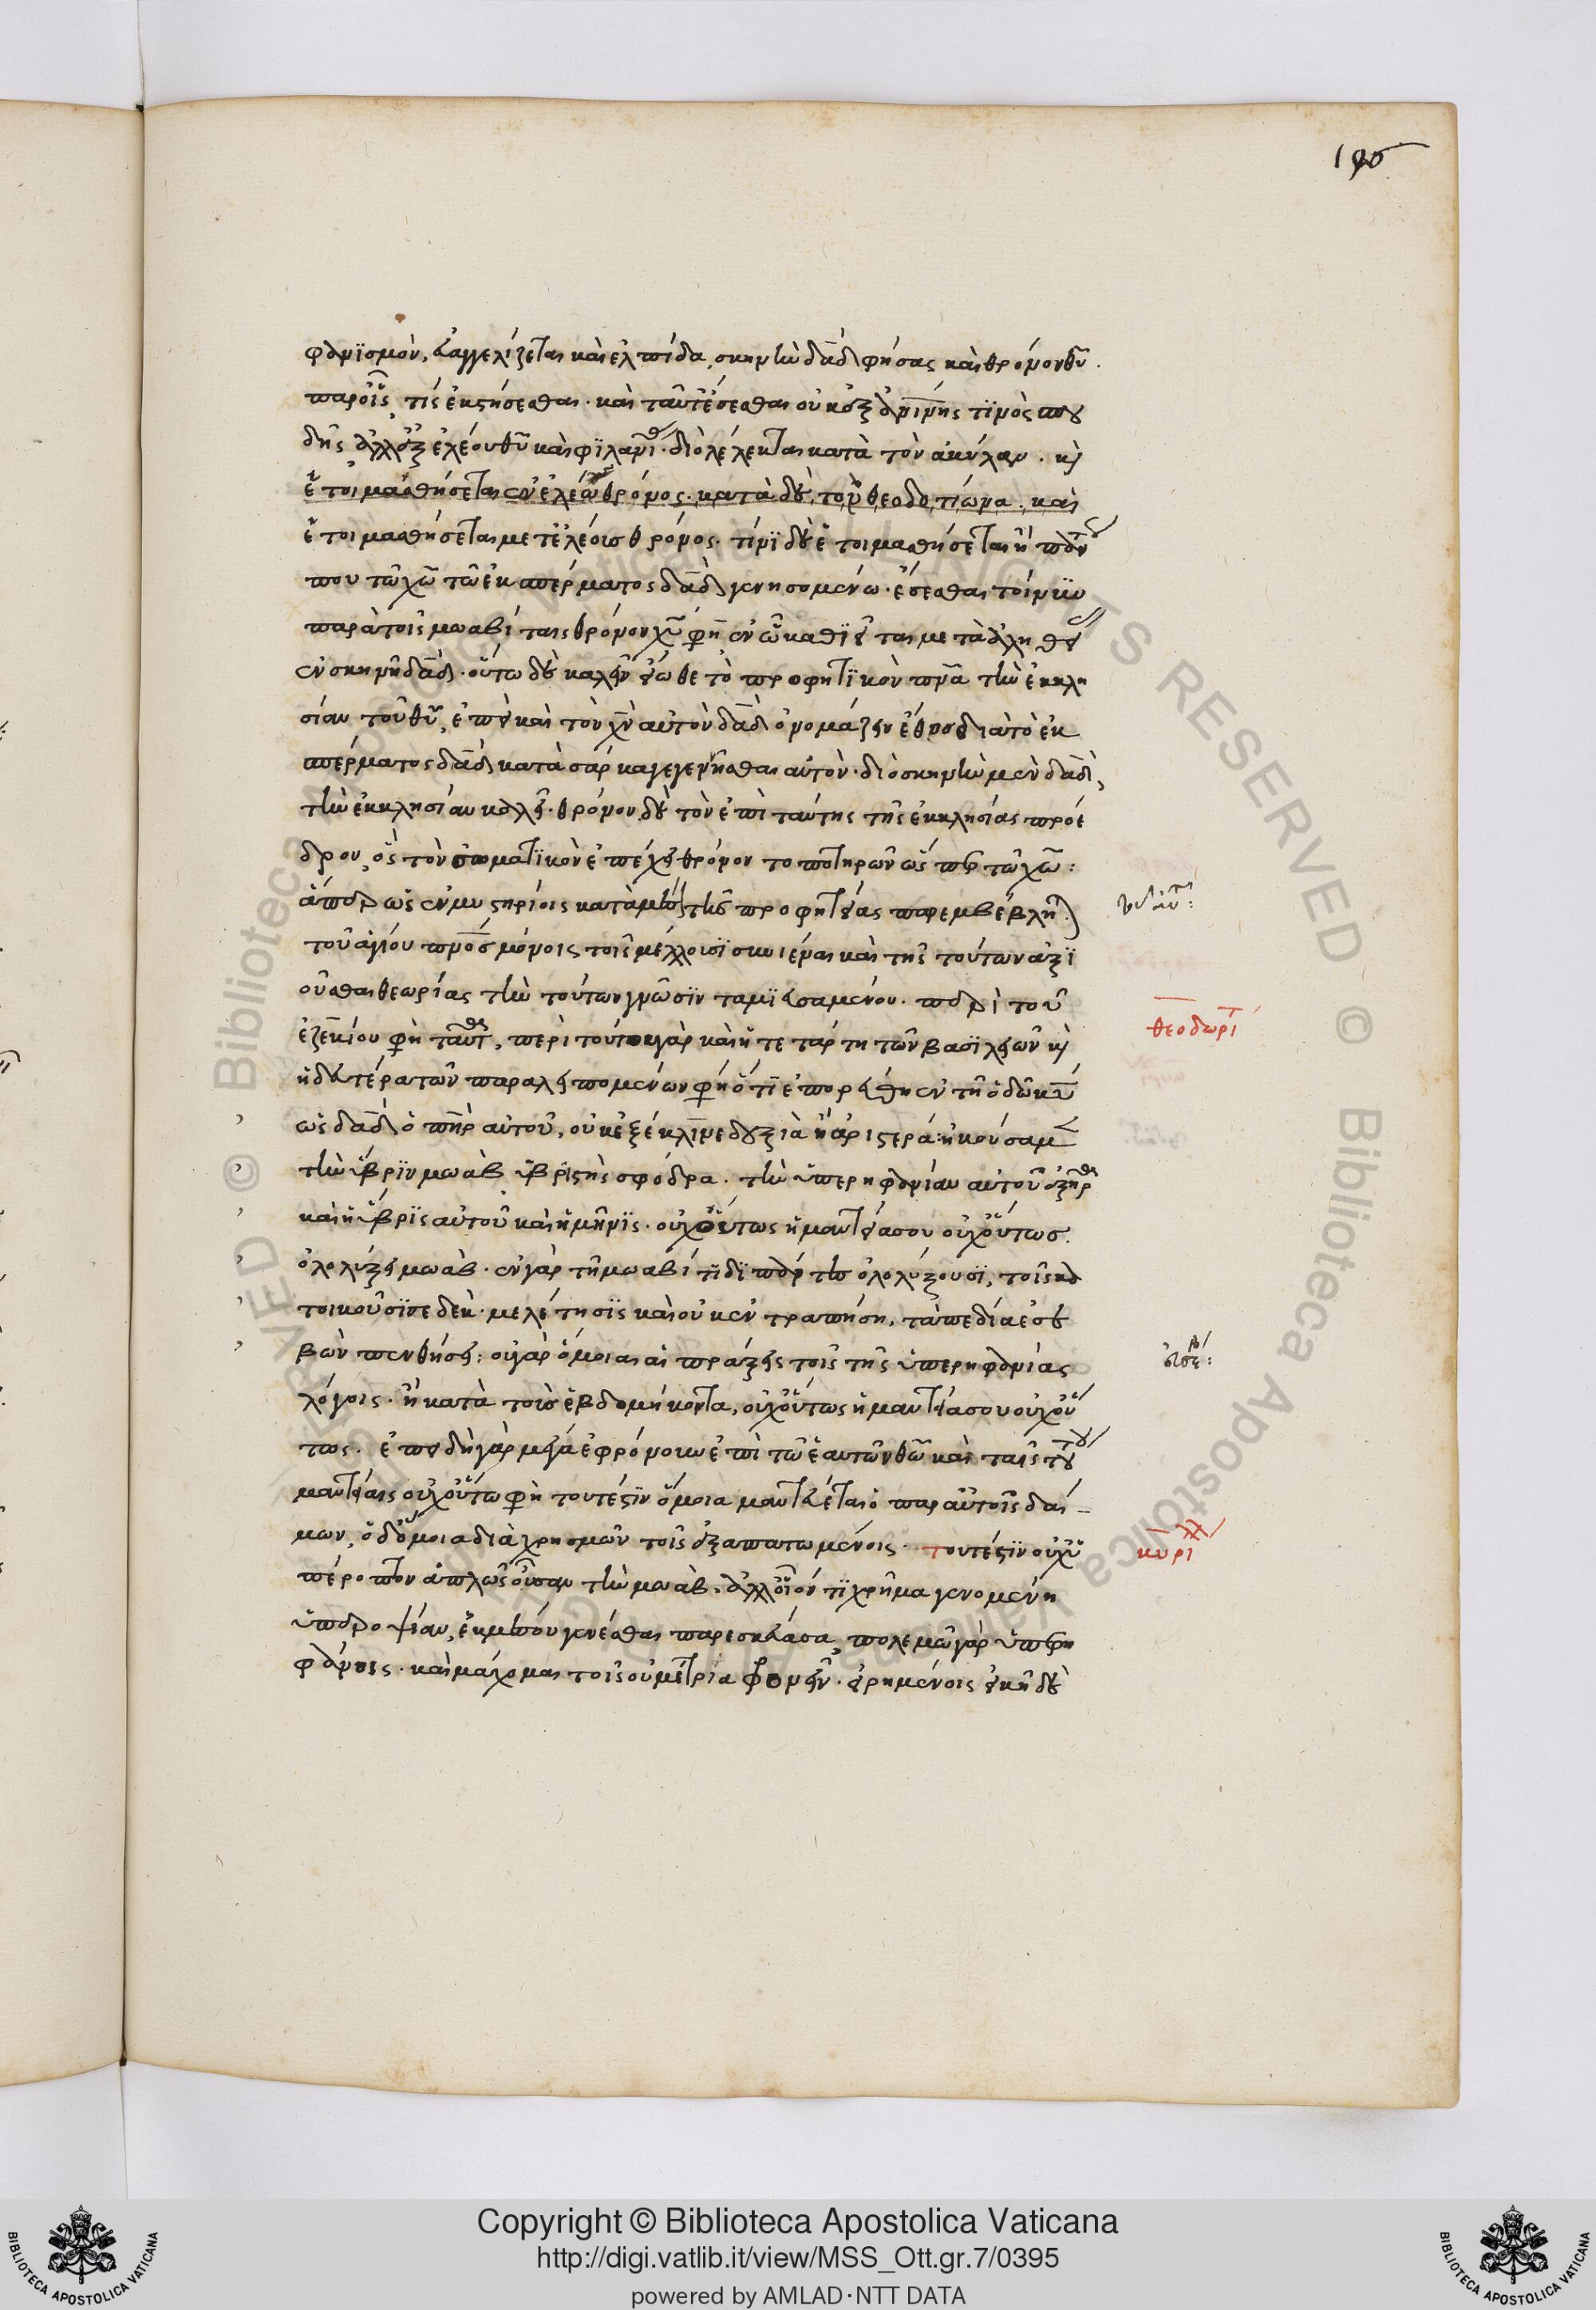 195
φρονισμὸν, εὐαγγελίζεται καὶ ἐλπίδα, σκηνὴν δᾱδ̄ φήσας καὶ θρόνον θῡ.
παρ' οἷς τίς ἐκστήσεσθαι. καὶ ταῦτ' ἔσεσθαι οὐκ ἐξ
δῆς ἀλλ' ἐξ ἐλέου θῡ καὶ φιλανίᾱς. διὸ λέλεκται κατὰ τὸν ἀκύλαν. κỳ
ἑτοιμασθήσεται ἐν ἐλέω θρόνος. κατὰ δὲ τὸν θεοδοτίωνα. καὶ
ἑτοιμασθήσεται μετ' ἐλέους θρόνος. τίνι δὲ ἑτοιμασθήσεται ἢ πάν
που τῶ χῶ τῶ ἐκ σπέρματος δᾱδ̄ γενησομένω. ἔσεσθαι τοίνυν
παρὰ τοῖς μωαβίταις θρόνον χῡ φη ἐν ὧ καθιεῖται μετὰ ἀληθεί
ἐν σκηνῆ δᾱδ̄. οὕτω δὲ καλεῖν εἴωθε τὸ προφητικὸν πνᾱ τὴν ἐκκλη
σίαν τοῦ θῡ, ἐπεὶ καὶ τὸν χν̄ αὐτὸν δᾱδ̄ ὀνομάζειν ἔθος διὰ τὸ ἐκ
σπέρματος δᾱδ̄ κατὰ σάρκα γεγενῆσθαι αὐτὸν. διὸ σκηνὴν μὲν δᾱδ̄,
τὴν ἐκκλησίαν καλεῖ. θρόνον δὲ τὸν ἐπὶ ταύτης τῆς ἐκκλησίας πρόε
δρον, ὃς τὸν σωματικὸν ἐπέχει θρόνον τοποτηρῶν ὥσπερ τῶ χῶ:
ἅπερ ὡς ἐν μυστηρίοις κατὰ μέσης τῆς προφητείας παρεμβέβληται
τοῦ ἁγίου πνς̄ μόνοις τοῖς μέλλουσι συνιέναι καὶ τῆς τούτων ἀξι
οῦσθαι θεωρίας τὴν τούτων γνῶσιν ταμιευσαμένου. περὶ τοῦ
θεοδωρί
ἐζεκίου φη ταῦτα, περὶ τούτου γὰρ καὶ ἡ τετάρτη τῶν βασιλειῶν κỳ
ἡ δευτέρα τῶν παραλειπομένων φη ὅτι ἐπορεύθη ἐν τῆ ὁδῶ κῡ
ὡς δᾱδ̄ ὁ πη̄ρ αὐτοῦ, οὐκ ἐξέκλινε δεξιὰ ἢ ἀριστερά: ἠκούσαμεν
τὴν ὕβριν μωὰβ ὑβριστὴς σφόδρα. τὴν ὑπερηφανίαν αὐτοῦ ἐξῆρας
καὶ ἡ ὕβρις αὐτοῦ καὶ ἡ μῆνις. οὐχ οὕτως ἡ μαντεία σου οὐχ οὕτως.
ὀλολύξει μωὰβ. ἐν γὰρ τῆ μωαβίτιδι πάντες ὀλολύξουσι, τοῖς κα
τοικοῦσι σεδὲκ. μελέτησις καὶ οὐκ ἐντραπήση, τὰ πεδία ἐσε
βὼν πενθήσει: οὐ γὰρ ὅμοιαι αἱ πράξεις τοῖς τῆς ὑπερηφανίας
λόγοις. ἢ κατὰ τοὺς ἑβδομήκοντα, οὐχ οὕτως ἡ μαντεία σου οὐχ οὕ
τως. ἐπειδὴ γὰρ μεγάλα ἐφρόνουν ἐπὶ τῶ ἑαυτῶν θῶ καὶ ταῖς τού
μαντείαις οὐχ οὕτω φη τουτέστιν ὅμοια μαντεύεται ὁ παρ' αὐτοῖς δαί
μων, ὁ δ' ὅμοια διὰ χρησμῶν τοῖς ἐξαπατωμένοις. τουτέστιν οὐχ ὑ
κυρίλλ
πέροπτον ἁπλῶς οὖσαν τὴν μωὰβ. ἀλλ' οἷόν τι χρῆμα γενομένη
ὑπεροψίαν, ἐκμέσου γενέσθαι παρεσκεύασα, πολεμῶ γὰρ ὑπερη
φάνοις. καὶ μάχομαι τοῖς οὐ μέτρια φρονεῖν. εἰρημένοις ἐκεῖ δὲ
Copyright © Biblioteca Apostolica Vaticana
http://digi.vatlib.it/view/MSS_Ott.gr.7/0395
powered by AMLAD·NTT DATA
BIBLIOTECA APOSTOLICA VATICANA
BIBLIOTECA APOSTOLICA VATICANA